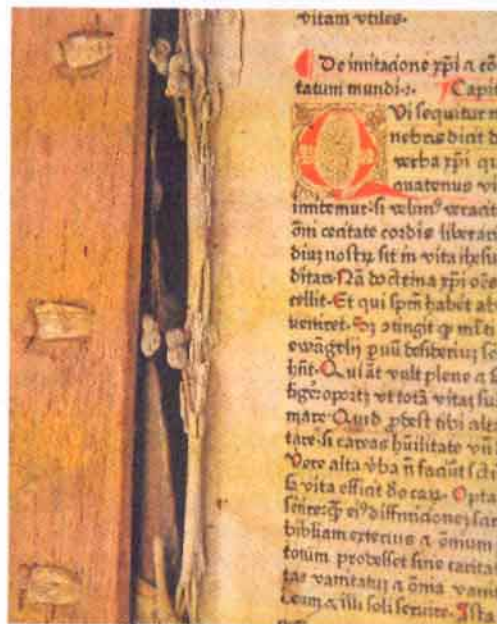 vitam vtiles.
De imitacione xp̄i ⁊ cō
tatum mundi.⁊. Capit
Qvi sequitur
nebris dicit d
verba xp̄i qu
quatenus vi
imitemur. si velim⁹ veracit
ōni cecitate cordis liberari
diuȝ nostrȝ sit in vita ihesu
ditari. Nā doctrina xp̄i oēs
cellit. Et qui spm̄ habet ab
ueniret. Sȝ ꝙ
ewāgelij
hn̄t. Qui āt vult plene ⁊ s
oportȝ vt totā vitaȝ su
mare Quid ꝓdest tibi alta
tare. si careas hūilitate vn̄
Vere alta v̄ba n̄ faciūt sct
sȝ vita efficit Opta
scire ei⁹ diffinicioneȝ
bibliam exterius ⁊ omnium
totum prodesset sine caritat
tas vanitatuȝ ⁊ ōnia vani
deum ⁊ illi soli seruire. Ista